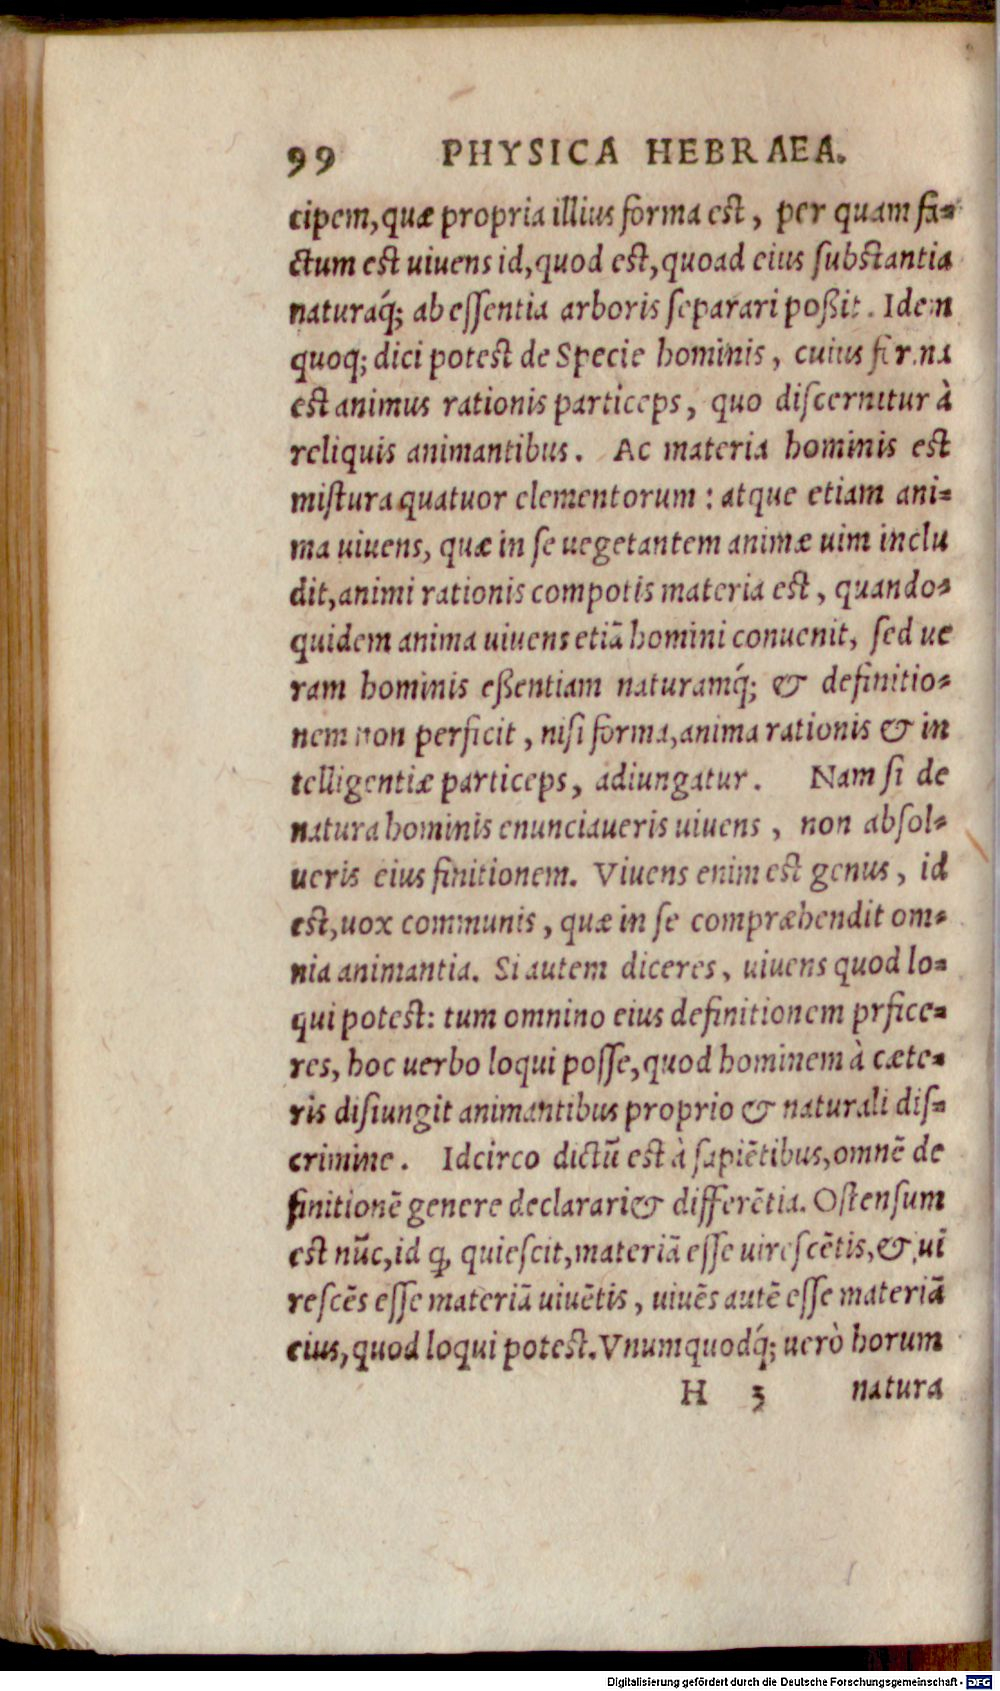 99 PHYSICA HEBRAEA.
cipem, quæ propria illius forma est, per quam fa-
ctum est uiuens id, quod est, quoad eius substantia
naturaq́; ab essentia arboris separari poßit. Idem
quoq; dici potest de Specie hominis, cuius forma
est animus rationis particeps, quo discernitur à
reliquis animantibus. Ac materia hominis est
mistura quatuor elementorum: atque etiam ani-
ma uiuens, quæ in se uegetantem animæ uim inclu
dit, animi rationis compotis materia est, quando-
quidem anima uiuens etiã homini conuenit, sed ue
ram hominis eßentiam naturamq́; & definitio-
nem non perficit, nisi forma, anima rationis & in
telligentiæ particeps, adiungatur. Nam si de
natura hominis enunciaueris uiuens, non absol-
ueris eius finitionem. Viuens enim est genus, id
est, uox communis, quæ in se compræhendit om-
nia animantia. Si autem diceres, uiuens quod lo-
qui potest: tum omnino eius definitionem prfice-
res, hoc uerbo loqui posse, quod hominem à cæte-
ris disiungit animantibus proprio & naturali dis-
crimine. Idcirco dictũ est à sapiẽtibus, omnẽ de
finitionẽ genere declarari & differẽtia. Ostensum
est nũc, id ꝙ, quiescit, materiã esse uirescẽtis, & ui
rescẽs esse materiã uiuẽtis, uiuẽs autẽ esse materiã
eius, quod loqui potest. Vnumquodq́; uerò horum
H 3 natura
Digitalisierung gefördert durch die Deutsche Forschungsgemeinschaft - DFG